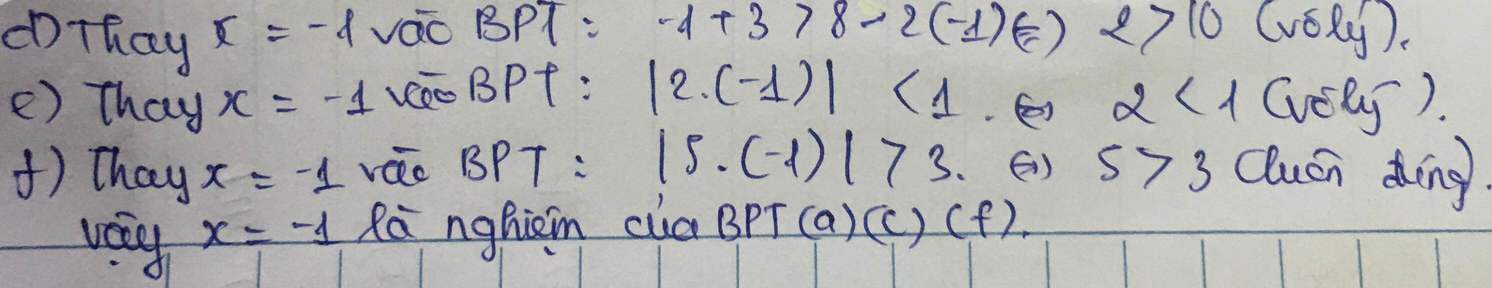 d) Thay x = -1 vào BPT: -1 + 3 > 8 - 2(-1) ⇔ 2 > 10 (vô lý).
e) Thay x = -1 vào BPT: |2.(-1)| < 1. ⇔ 2 < 1 (vô lý).
f) Thay x = -1 vào BPT: |5.(-1)| > 3. ⇔ 5 > 3 (luôn đúng).
vậy x = -1 là nghiệm của BPT (a) (c) (f).